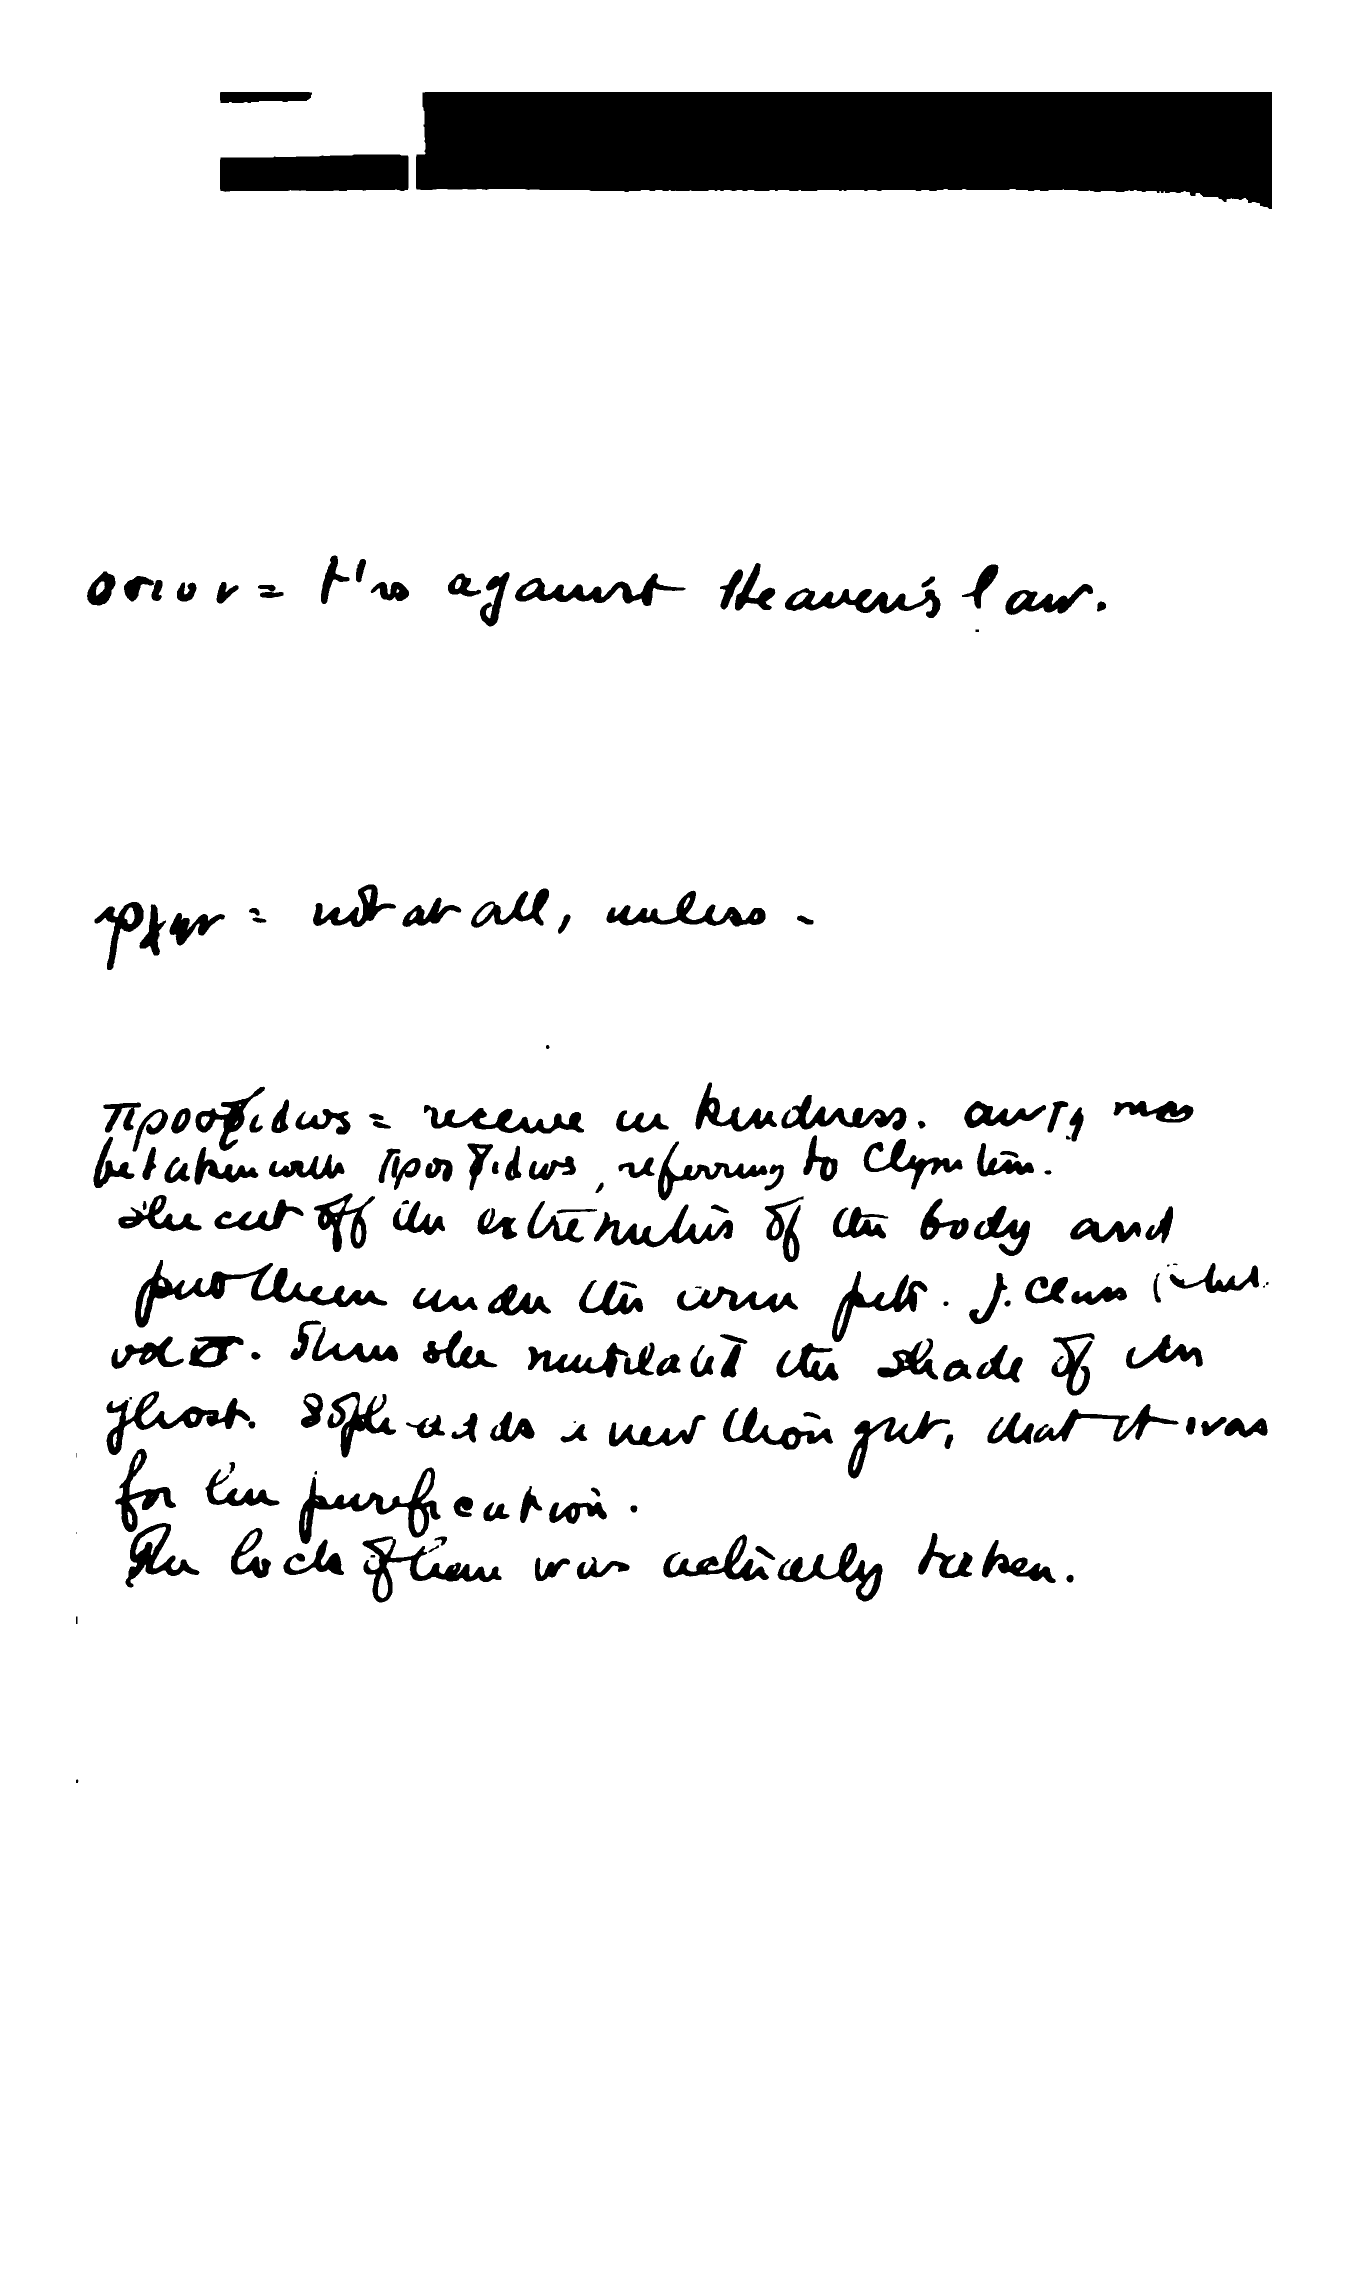 οσιον = t'is against Heaven's law.
= not at all, unless -
προσφιλως = receive in kindness. αυτη may
be taken with προσφιλως, referring to Clym tem.
she cut off the extremities of the body and
put them under the arm pits. J.
Thus she mutilated the shade of the
ghost. Soph adds a new thought, that it was
for her purification.
The lock of hair was actually taken.